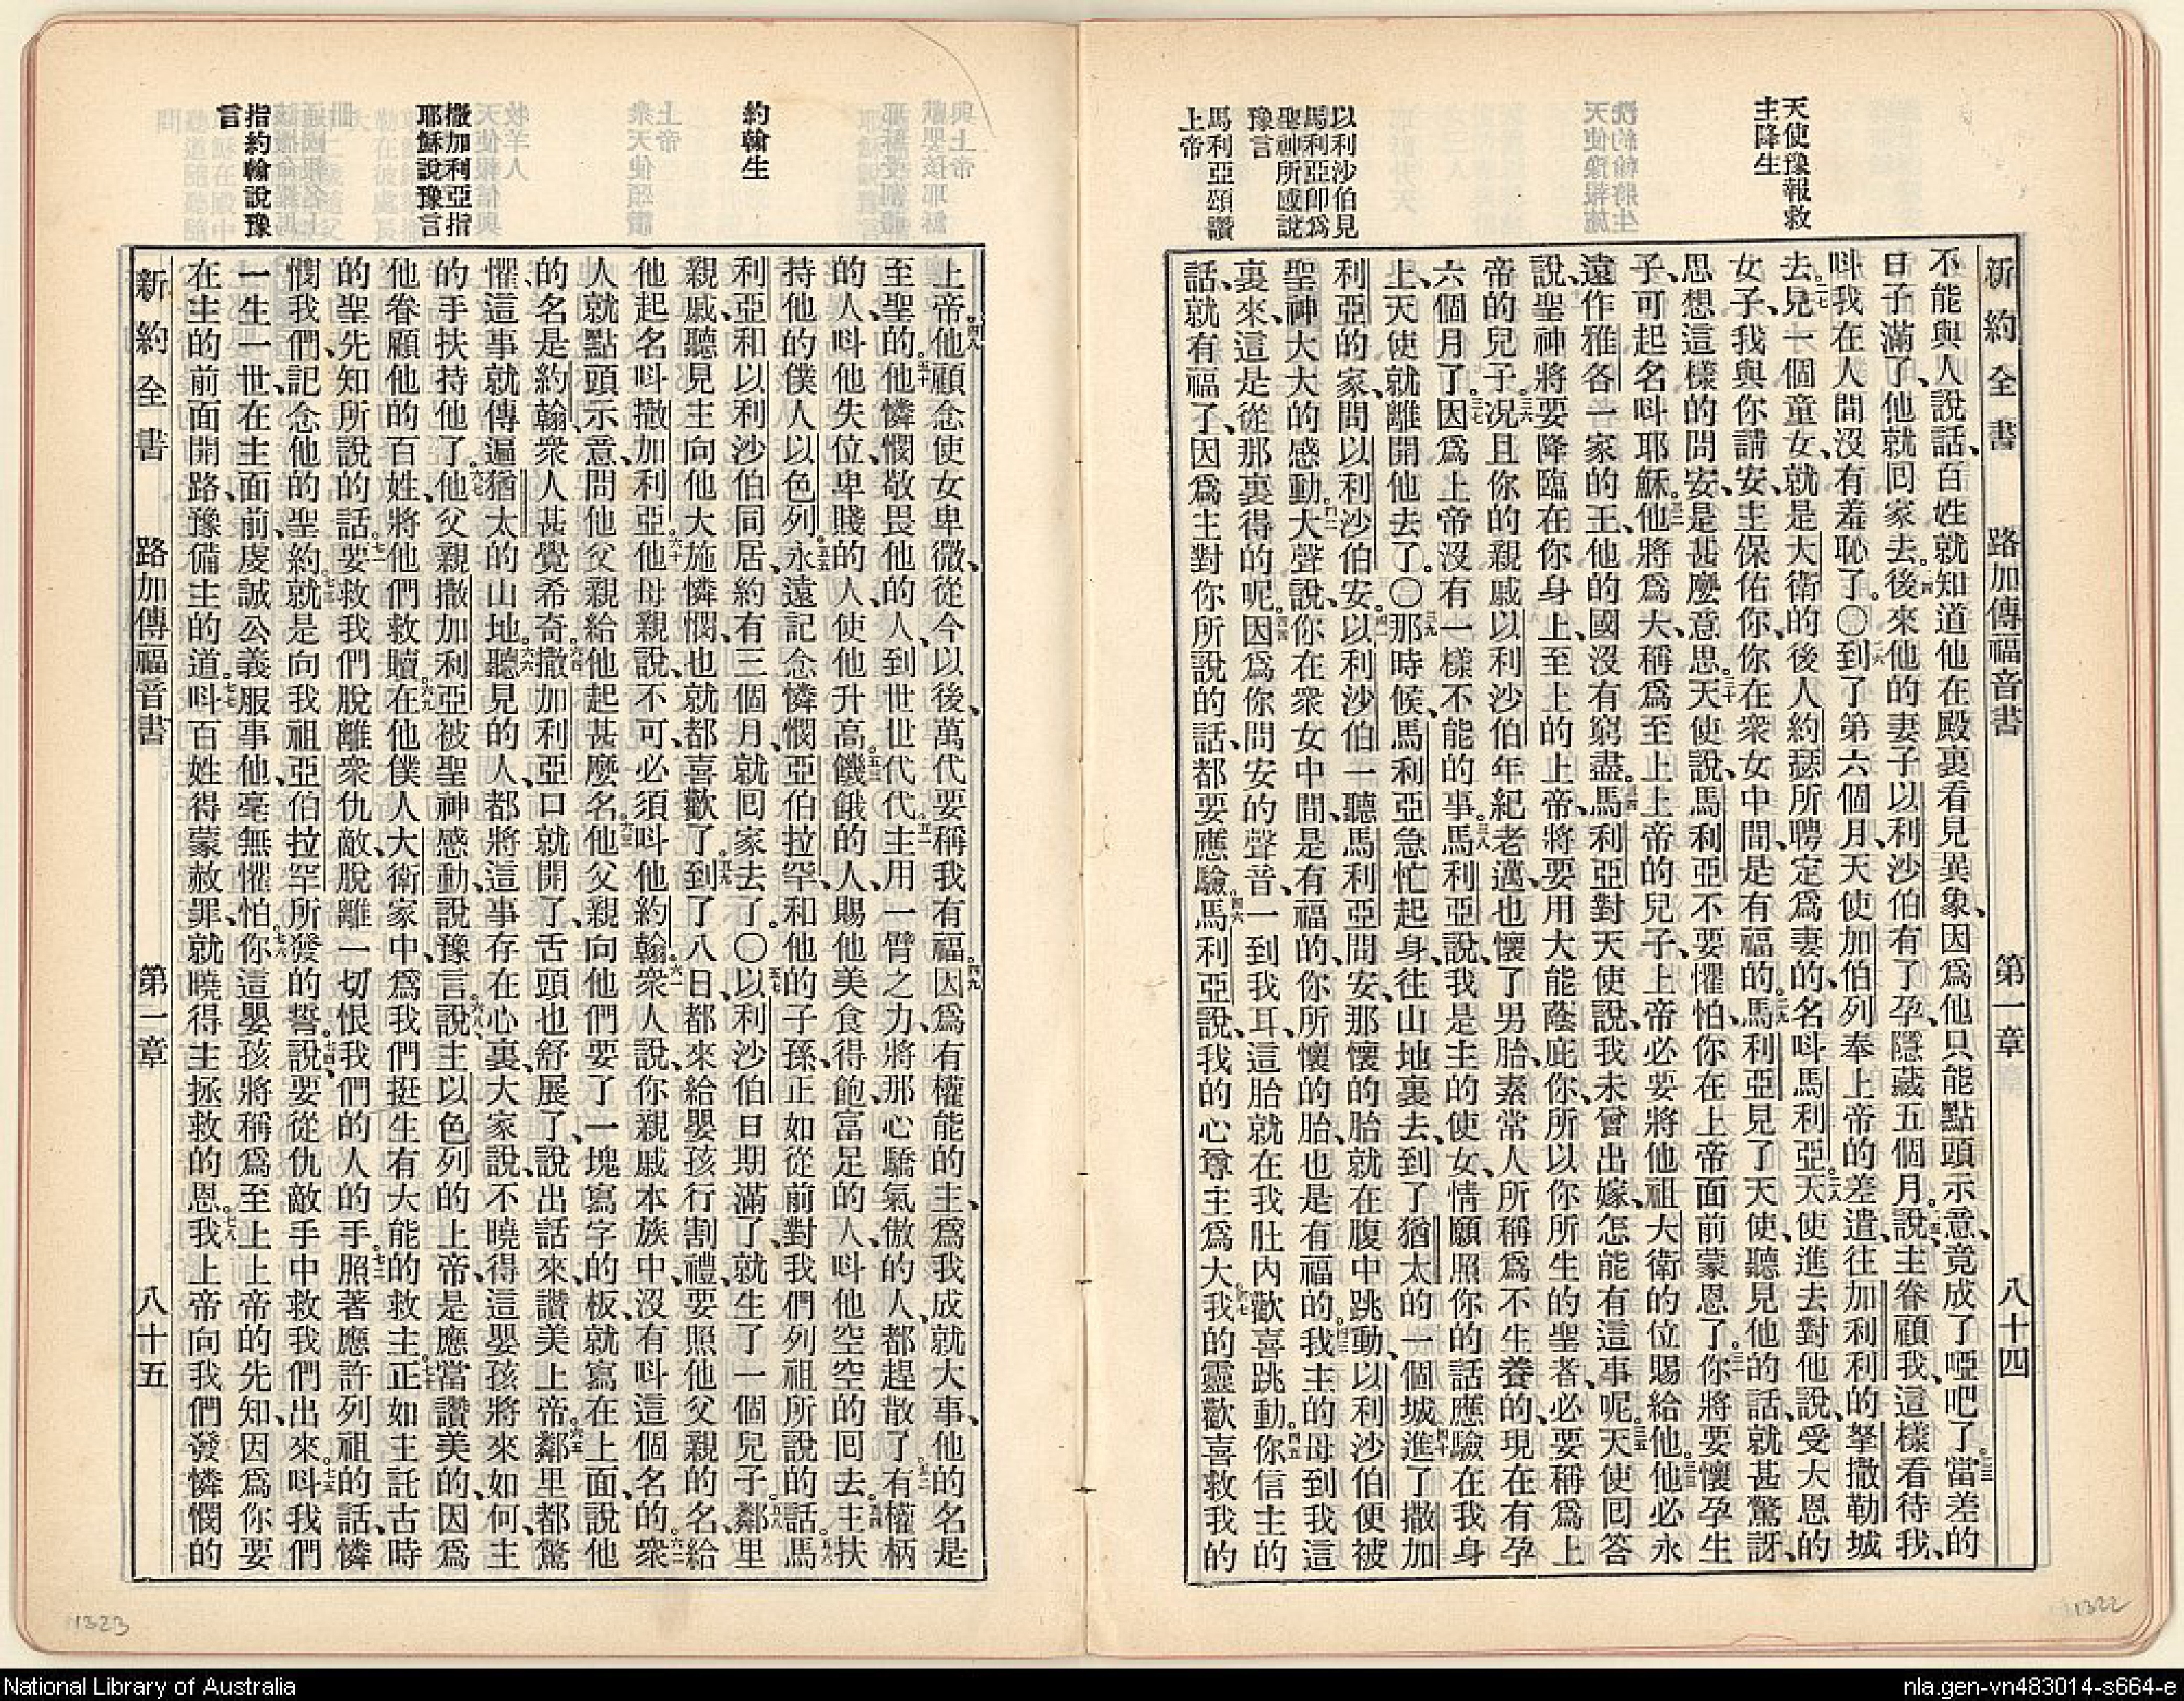 天使豫報救
主降生
以利沙伯見
馬利亞卽爲
聖神所感說
豫言
馬利亞頌讚
上帝
新約全書 路加傳福音書 第一章 八十四
不能與人說話、百姓就知道他在殿裏看見異象、因爲他只能點頭示意、竟成了啞吧了。二三當差的
日子滿了、他就囘家去。二四後來他的妻子以利沙伯有了孕、隱藏五個月。二五說、主眷顧我、這樣看待我、
呌我在人間沒有羞恥了。〇二六到了第六個月、天使加伯列奉上帝的差遣、往加利利的拏撒勒城
去、二七見一個童女、就是大衛的後人約瑟所聘定爲妻的、名呌馬利亞。二八天使進去對他說、受大恩的
女子、我與你請安、主保佑你、你在衆女中間、是有福的。二九馬利亞見了天使、聽見他的話、就甚驚訝、
思想這樣的問安、是甚麼意思。三十天使說、馬利亞不要懼怕、你在上帝面前蒙恩了。三一你將要懷孕生
子、可起名呌耶穌。三二他將爲大、稱爲至上上帝的兒子、上帝必要將他祖大衛的位賜給他。三三他必永
遠作雅各一家的王、他的國沒有窮盡。三四馬利亞對天使說、我未曾出嫁、怎能有這事呢。三五天使囘答
說、聖神將要降臨在你身上、至上的上帝、將要用大能蔭庇你、所以你所生的聖者、必要稱爲上
帝的兒子。三六况且你的親戚以利沙伯、年紀老邁、也懷了男胎、素常人所稱爲不生養的、現在有孕
六個月了。三七因爲上帝沒有一樣不能的事。三八馬利亞說、我是主的使女、情願照你的話應驗在我身
上、天使就離開他去了。〇三九那時候、馬利亞急忙起身、往山地裏去、到了猶太的一個城、四十進了撒加
利亞的家、問以利沙伯安。四一以利沙伯一聽馬利亞問安、那懷的胎就在腹中跳動、以利沙伯便被
聖神大大的感動。四二大聲說、你在衆女中間是有福的、你所懷的胎、也是有福的。四三我主的母到我這
裏來、這是從那裏得的呢。四四因爲你問安的聲音、一到我耳、這胎就在我肚內歡喜跳動。四五你信主的
話、就有福了、因爲主對你所說的話、都要應驗。四六馬利亞說、我的心尊主爲大。四七我的靈歡喜救我的
約翰生
撒加利亞指
耶穌說豫言
指約翰說豫
言
上帝。四八他顧念使女卑微、從今以後、萬代要稱我有福。四九因爲有權能的主、爲我成就大事、他的名是
至聖的。五十他憐憫敬畏他的人、到世世代代。五一主用一臂之力、將那心驕氣傲的人、都趕散了。五二有權柄
的人、呌他失位、卑賤的人、使他升高。五三饑餓的人、賜他美食得飽、富足的人、呌他空空的囘去。五四主扶
持他的僕人以色列。五五永遠記念憐憫亞伯拉罕、和他的子孫、正如從前對我們列祖所說的話。五六馬
利亞和以利沙伯同居、約有三個月、就囘家去了。〇五七以利沙伯日期滿了、就生了一個兒子。五八鄰里
親戚、聽見主向他大施憐憫、也就都喜歡了。五九到了八日、都來給嬰孩行割禮、要照他父親的名、給
他起名呌撒加利亞。六十他母親說、不可、必須呌他約翰。六一衆人說、你親戚本族中、沒有呌這個名的。六二衆
人就點頭示意、問他父親給他起甚麼名。六三他父親向他們要了一塊寫字的板、就寫在上面、說他
的名是約翰、衆人甚覺希奇。六四撒加利亞口就開了、舌頭也舒展了、說出話來、讚美上帝。六五鄰里都驚
懼、這事就傳遍猶太的山地。六六聽見的人、都將這事存在心裏、大家說、不曉得這嬰孩將來如何、主
的手扶持他了。六七他父親撒加利亞被聖神感動、說豫言。六八說、主以色列的上帝、是應當讚美的、因爲
他眷顧他的百姓、將他們救贖。六九在他僕人大衛家中、爲我們挺生有大能的救主。七十正如主託古時
的聖先知所說的話。七一要救我們脫離衆仇敵、脫離一切恨我們的人的手。七二照著應許列祖的話、憐
憫我們、記念他的聖約。七三就是向我祖亞伯拉罕所發的誓。七四說、要從仇敵手中救我們出來。七五呌我們
一生一世、在主面前、虔誠公義服事他、毫無懼怕。七六你這嬰孩、將稱爲至上上帝的先知、因爲你要
在主的前面開路、豫備主的道。七七呌百姓得蒙赦罪、就曉得主拯救的恩。七八我上帝向我們發憐憫的
新約全書 路加傳福音書 第一章 八十五
1323
1322
National Library of Australia
nla.gen-vn483014-s664-e